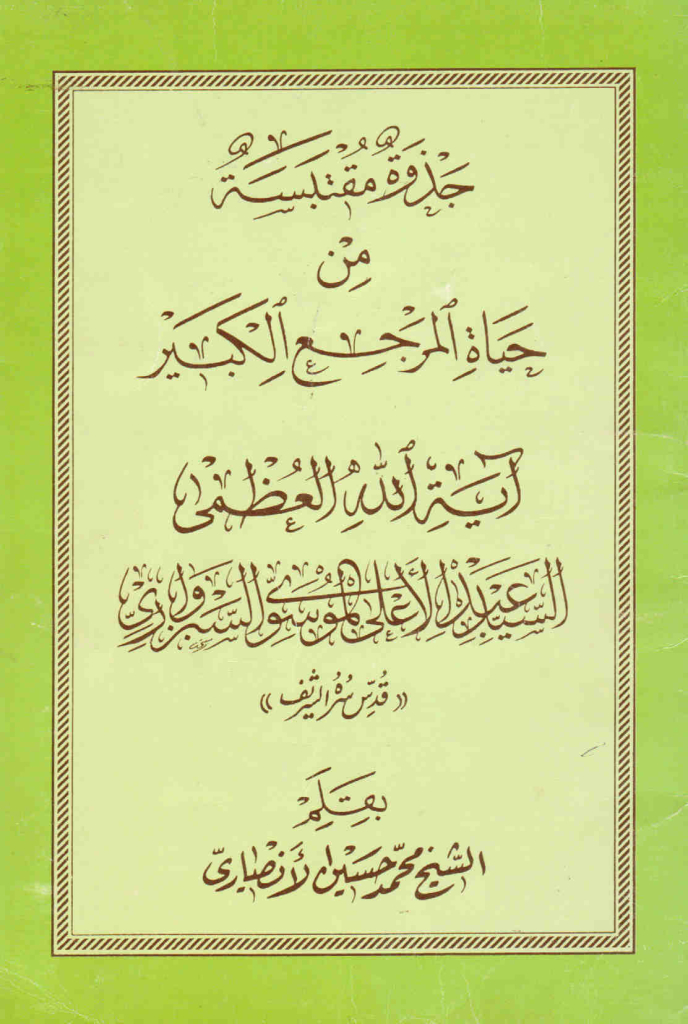 جَذْوَةٌ مُقْتَبَسَةٌ
مِنْ
حَيَاةِ ٱلمَرْجِعِ ٱلكَبِيْر
آيَةِ ٱللهِ العُظْمىٰ
السَّيِّد عَبْدِ الْأَعْلى المُوسَوِيّ السَّبْزَوارِيّ
«قُدِّسَ سِرُّهُ الشَّرِيف»
بِقَلَمِ
الشَّيْخ مُحَمَّد حُسَيْن الأَنْصَارِيّ